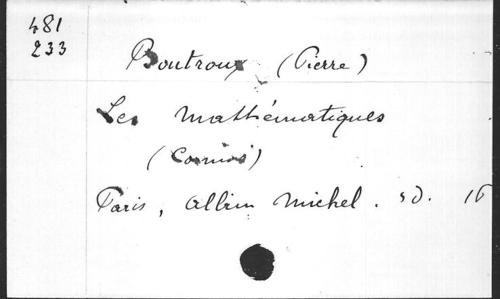 481
233
Boutroux (Pierre)
Les mathématiques
Paris, Albin Michel. sd. 16